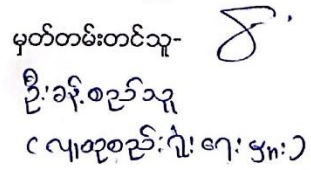 မှတ်တမ်းတင်သူ-
ဦးခန့်စည်သူ
(လူထုစည်းရုံးရေးမှူး)